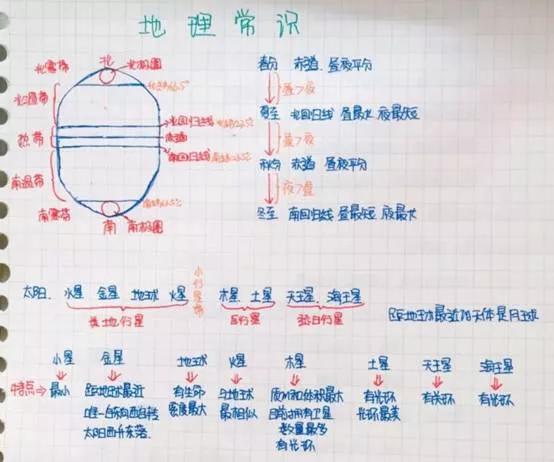 地理常识
北寒带
北
北极圈
北纬66.5°
北温带
热带
南温带
南寒带
北回归线 北纬23.5°
赤道
南回归线 南纬23.5°
南纬66.5°
南
南极圈
春分 赤道 昼夜平分
昼>夜
夏至 北回归线 昼最长 夜最短
昼>夜
秋分 赤道 昼夜平分
夜>昼
冬至 南回归线 昼最短 夜最长
太阳、水星 金星 地球 火星 小行星带 木星、土星 天王星、海王星
类地行星 巨行星 远日行星
距地球最近的天体是月球
水星 金星 地球 火星 木星 土星 天王星 海王星
特点 最小
距地球最近
唯一自东向西自转
太阳西升东落
有生命
密度最大
与地球
最相似
质量和体积最大
目前拥有卫星
数量最多
有光环
有光环
光环最美
有光环
有光环